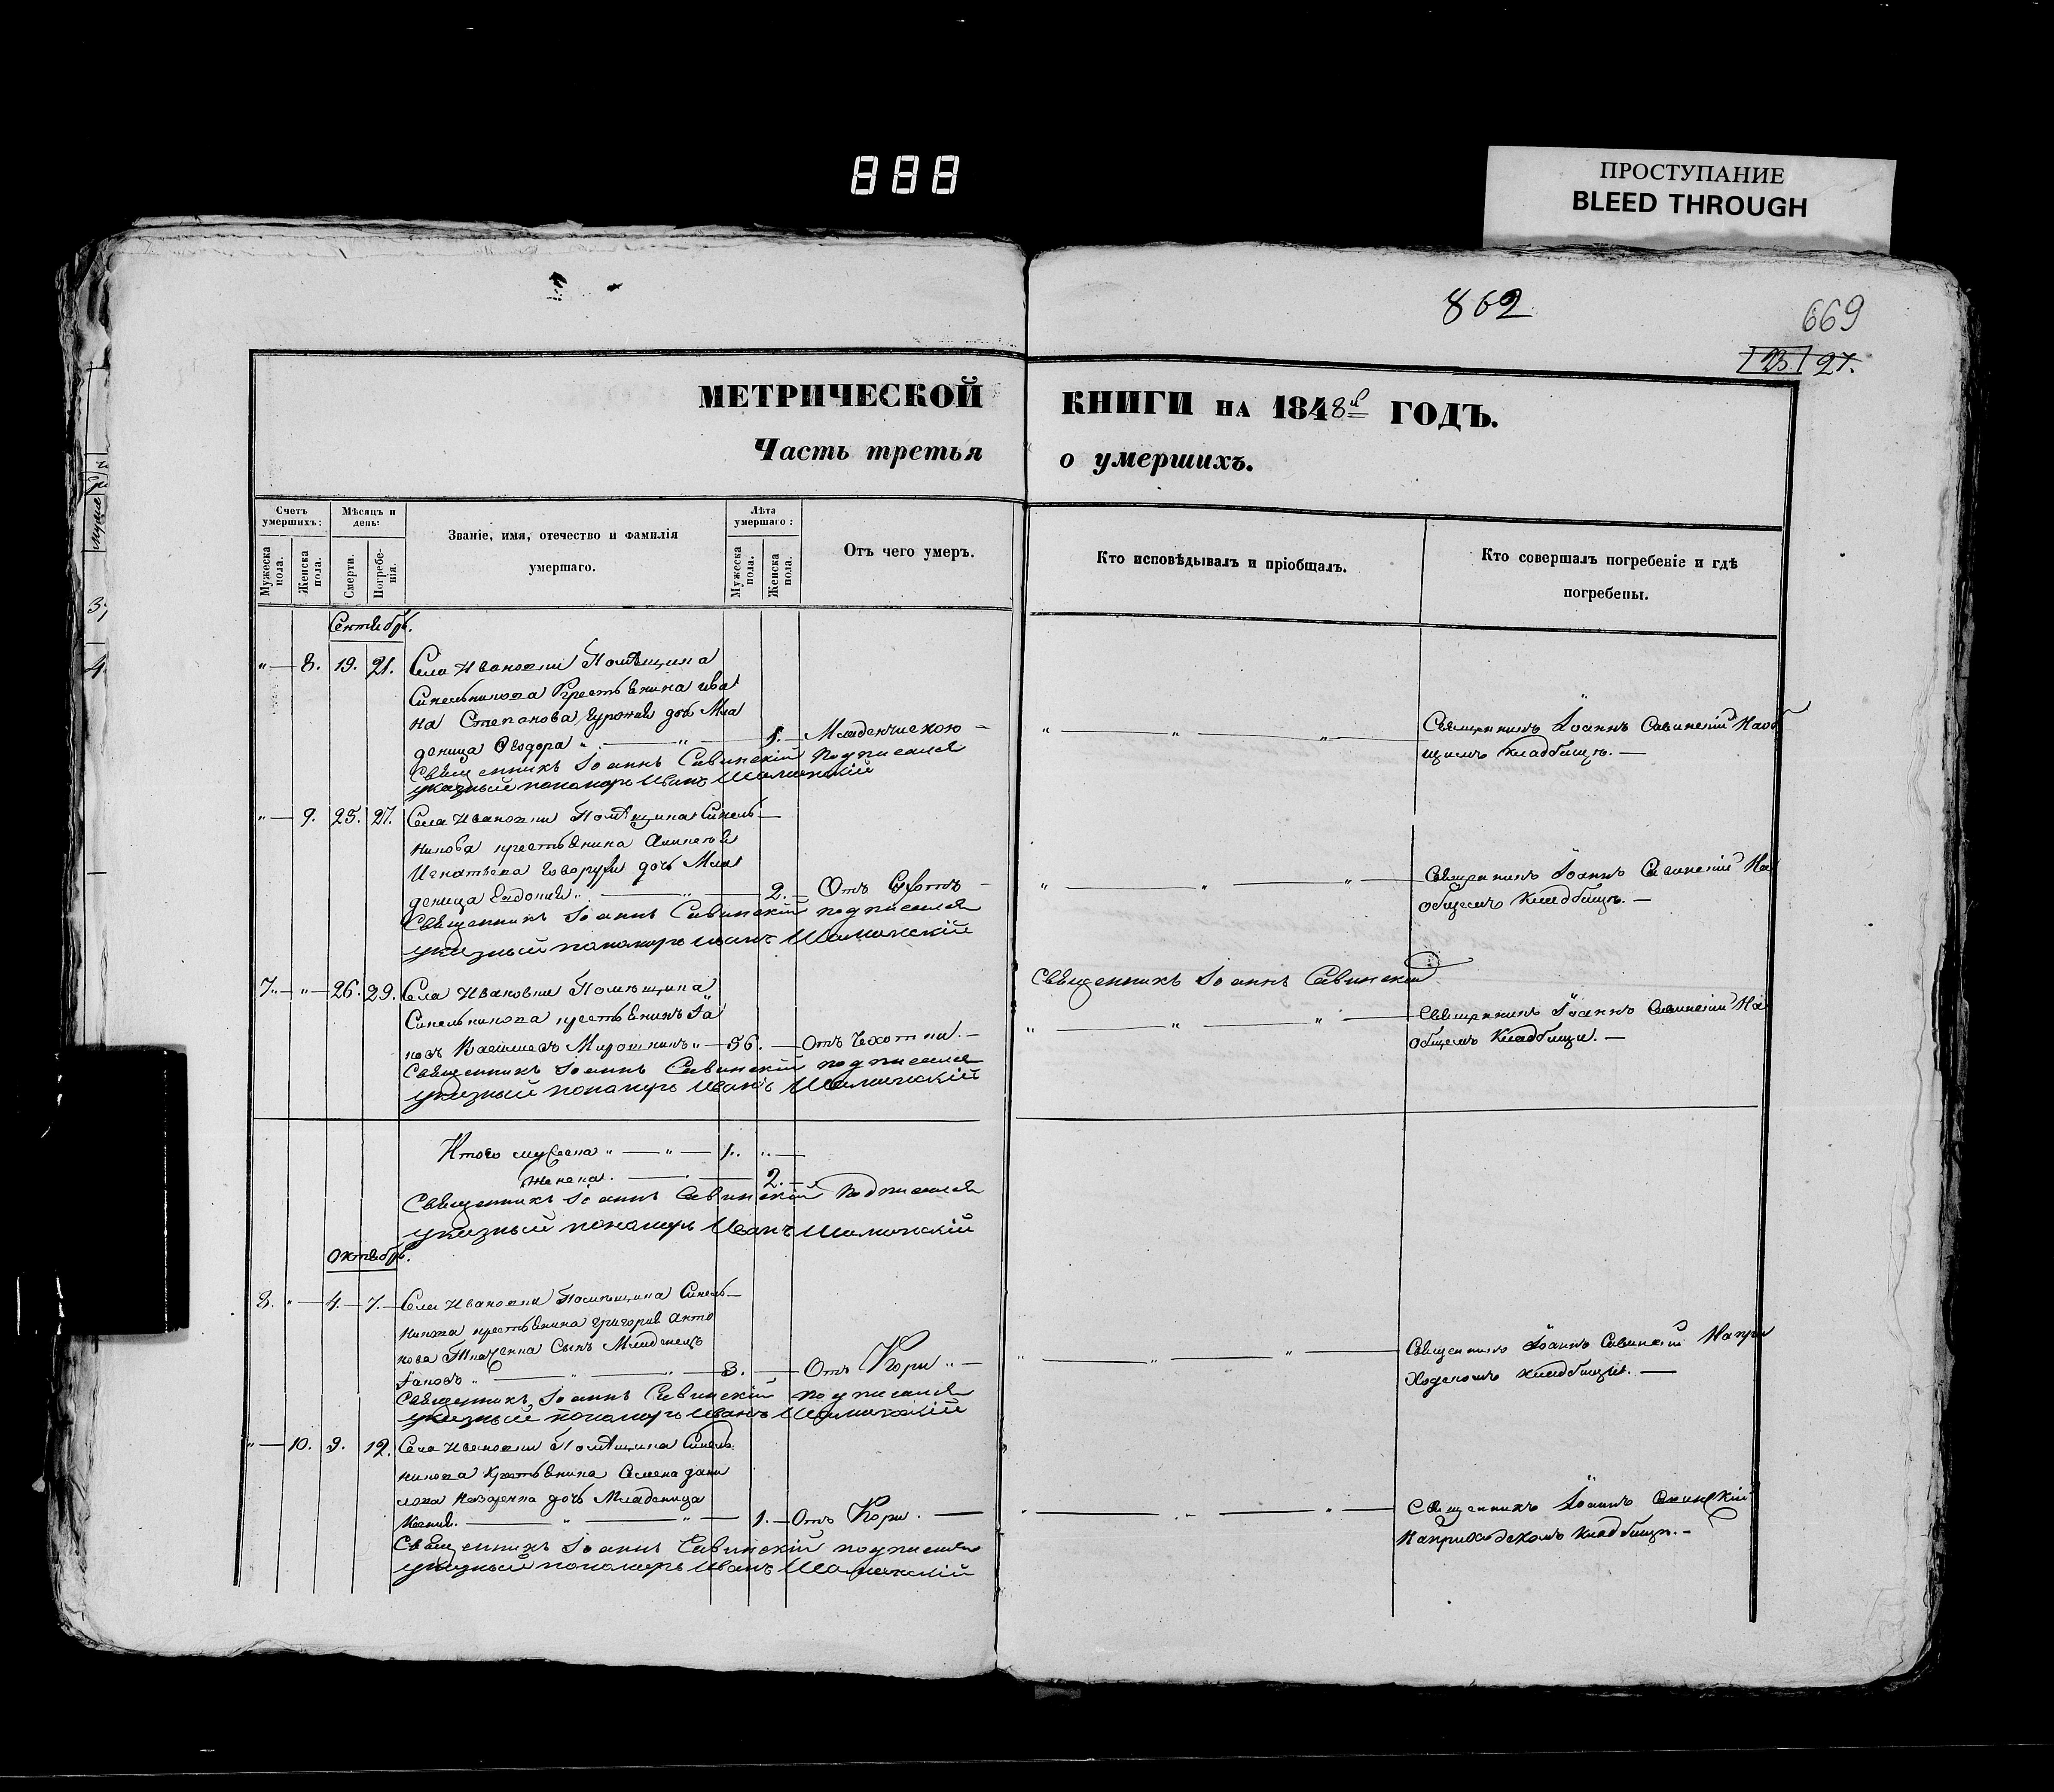 888
ПРОСТУПАНИЕ
BLEED THROUGH
862
669
23. 27.
МЕТРИЧЕСКОЙ КНИГИ НА 1848й ГОДЪ.
Часть третья о умершихъ.
Счетъ умершихъ:
Мѣсяцъ и день:
Званіе, имя, отечество и фамилія умершаго.
Лѣта умершаго:
Отъ чего умеръ.
Кто исповѣдывалъ и пріобщалъ.
Кто совершалъ погребеніе и гдѣ погребены.
Мужеска пола.
Женска пола.
Смерти.
Погребенія.
Мужеска пола.
Женска пола.
Сентябрь.
" — 8. 19. 21. Села Ивановки Помѣщика
Синельникова Крестьянина Ива
на Степанова дочь Мла
деница Ѳеодора " — " — 1. — Младенческою —
Священникъ Іоаннъ Савинскій На об
щемъ кладбищѣ. —
Священникъ Іоаннъ Савинскій подписался
указный пономарь Иванъ
" — 9. 25. 27. Села Ивановки Помѣщика Синель—
никова крестьянина Алексѣя
Игнатьева дочь Мла
деница Евдокія " — " — 2. — Отъ
Священникъ Іоаннъ Савинскій На
общемъ кладбищѣ. —
Священникъ Іоаннъ Савинскій подписался
указный пономарь Иванъ
7. — " — 26. 29. Села Ивановки Помѣщика
Синельникова крестьянинъ Іа
ковъ Васильевъ Мирошникъ " — 56. — Отъ Чахотки. —
Священникъ Іоаннъ Савинскій
Священникъ Іоаннъ Савинскій На
общемъ кладбищѣ. —
Священникъ Іоаннъ Савинскій подписался
указный пономарь Иванъ
Итого мужеска " — " — 1. " —
Женска. — 2. —
Священникъ Іоаннъ Савинскій подписался
указный пономарь Иванъ
Октябрь.
8. " — 4. — 7. — Села Ивановки Помѣщика Синель—
никова крестьянина Григорія Анто
нова Ткаченка Сынъ Младенецъ
Іаковъ " — " — " — 3. — Отъ Кори " —
Священникъ Іоаннъ Савинскій На при
ходскомъ кладбищѣ. —
Священникъ Іоаннъ Савинскій подписался
указный пономарь Иванъ
" — 10. 9. 12. Села Ивановки Помѣщика Синель
никова Крестьянина Семена Дани
лова дочь Младеница
Ксенія. — " — " — 1. — Отъ Кори. —
Священникъ Іоаннъ Савинскій
На приходскомъ кладбищѣ. —
Священникъ Іоаннъ Савинскій подписался
указный пономарь Иванъ